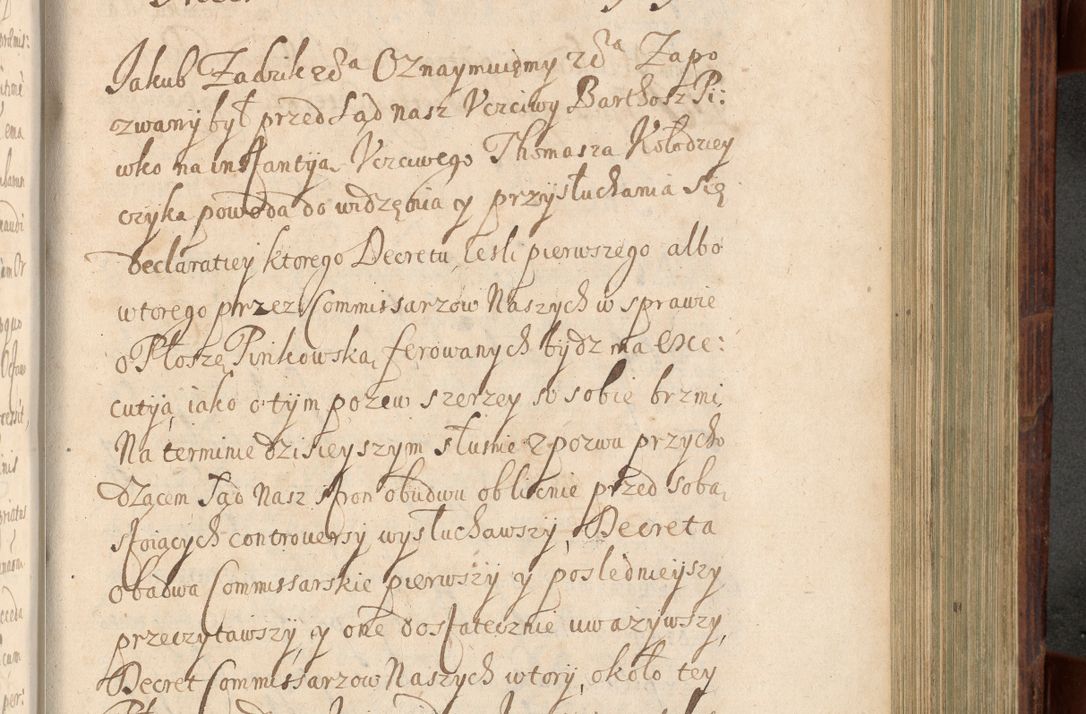 Jakub Zadzik etca Oznaymuięmy etca Zapo
zwany był przed Sąd nasz Vczciwy Barthosz Pi:
wko na instantyją Vczciwego Thomasza Kołodziey
czyka powoda do widzęnia y przysłuchania się
declaratiey ktorego Decretu iesli pierwszego albo
wtorego przez Commissarzow Naszych w sprawie
o Płoszę Pinkowską ferowanych bydz ma exe:
cutyją iako o tym pozew szerzey so sobie brzmi,
Na terminie dzisieyszym słusnie z pozwu przycho
dzącem Sąd Nasz stron obudwu oblicnie przed sobą
stoiących controuersy wysłuchawszy, Decreta
obadwa Commissarskie pierwszy y posledniejszy
przeczytawszy, y one dostatecznie uważywszy,
Decret Commissarzow Naszych wtory, około tey